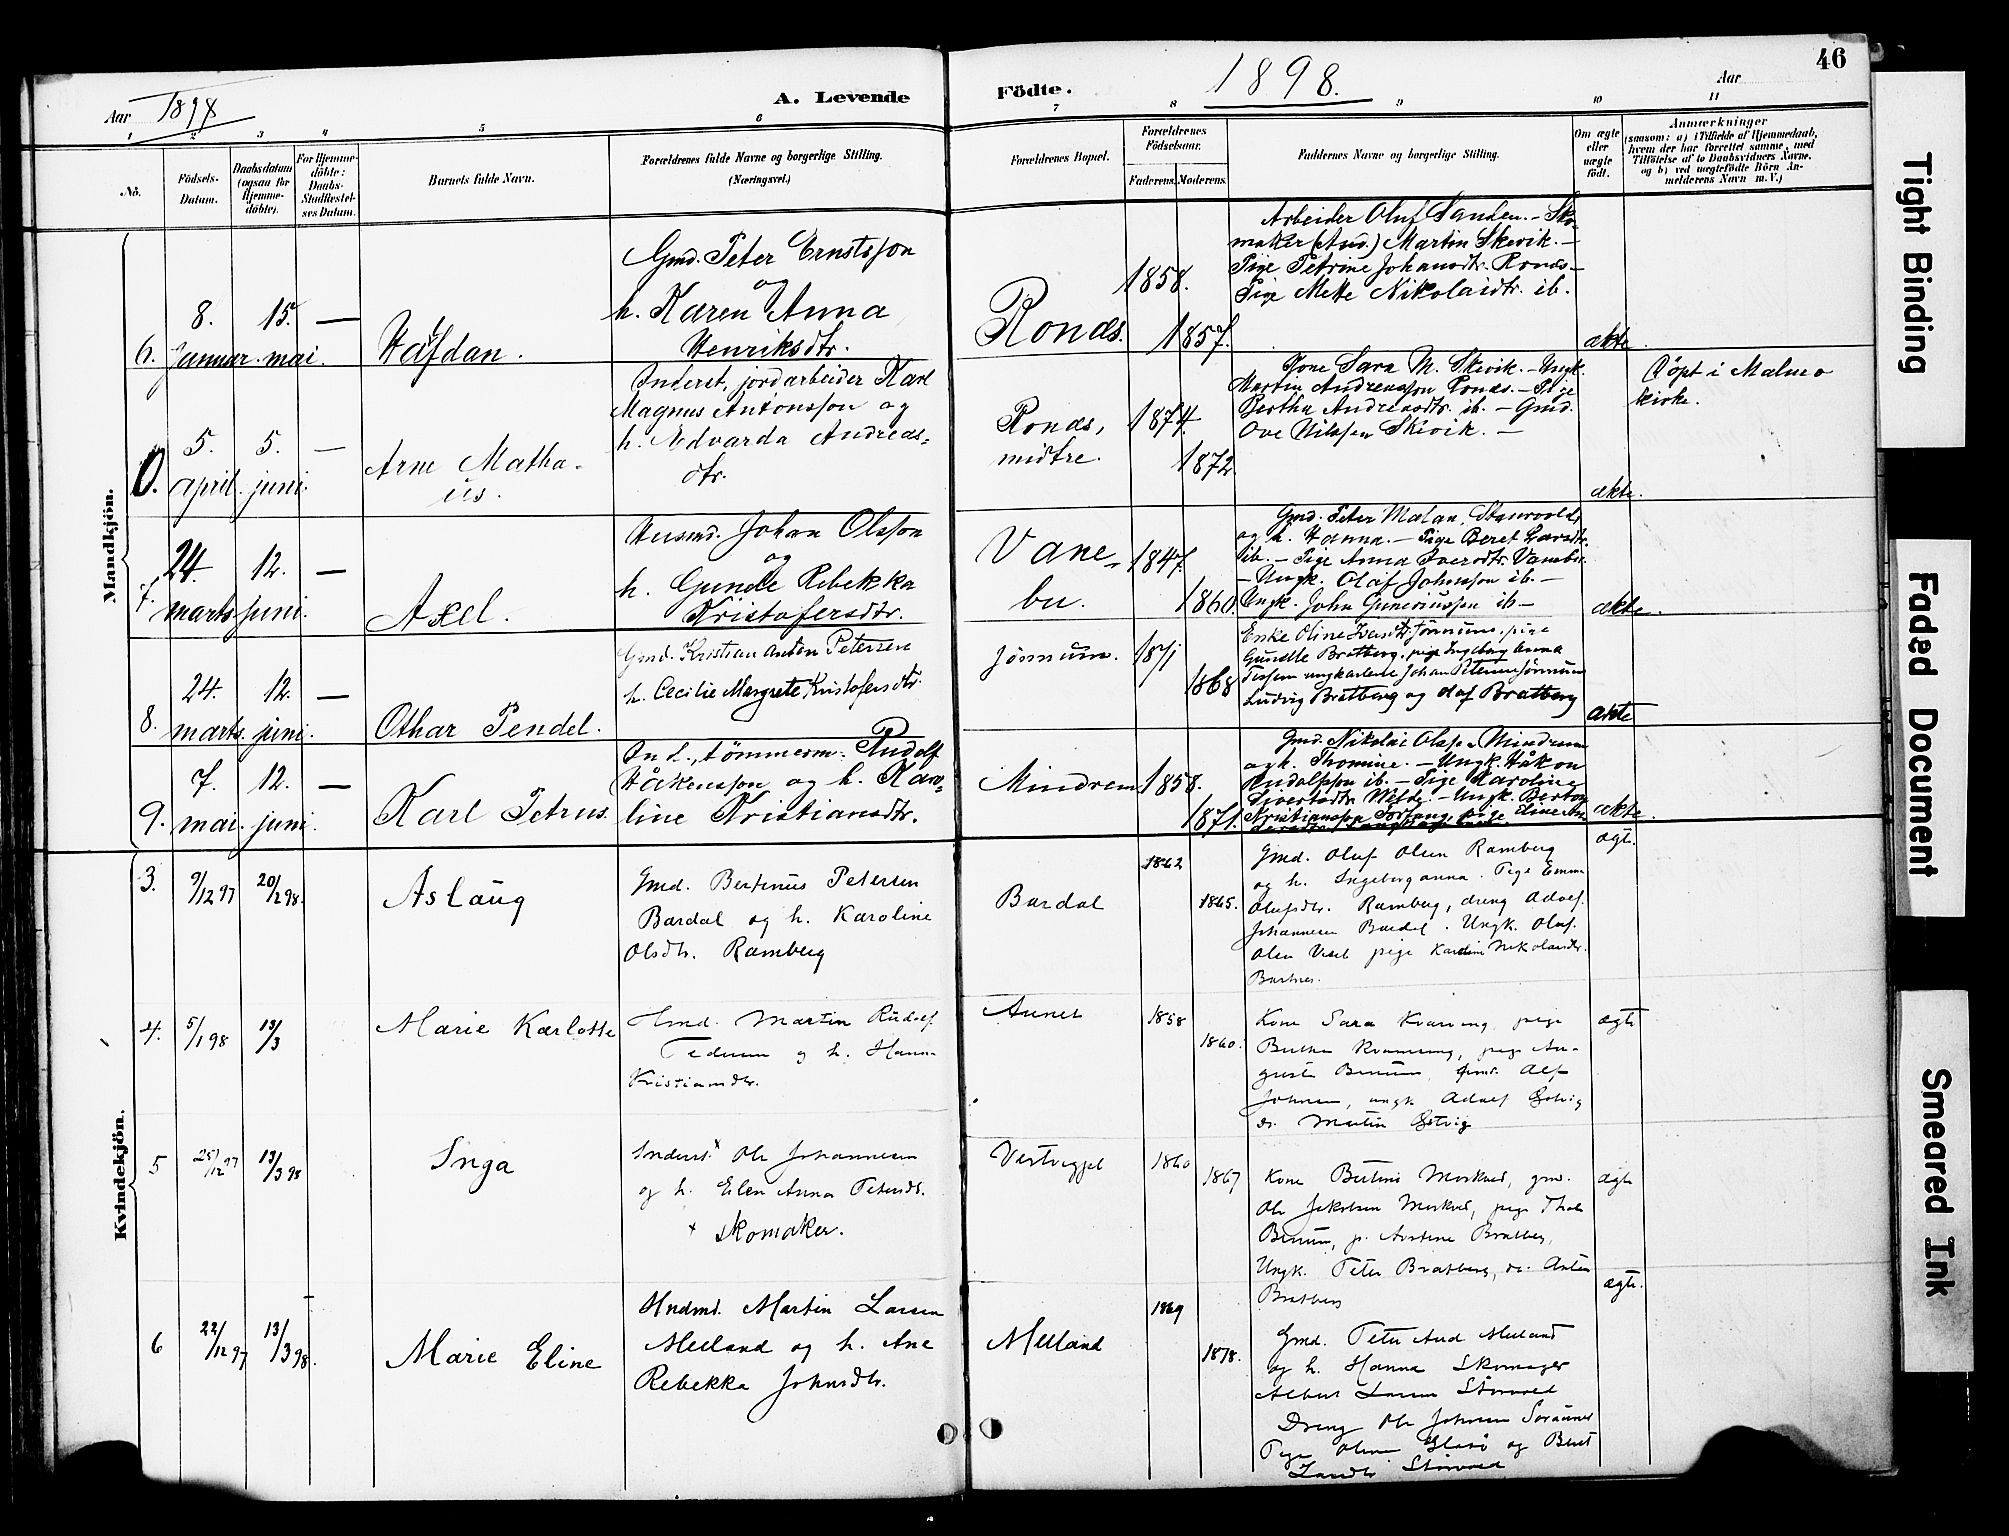 46
Aar 1898
A. Levende
Födte.
1898.
Aar
1 2 3 4 5 6
7 8 9 10 11
No.
Födsels-Datum.
Daabsdatum (ogsaa for Hjemme-döbte).
For Hjemme-döbte: Daabs-Stadfestelses Datum.
Barnets fulde Navn.
Forældrenes fulde Navne og borgerlige Stilling. (Næringsvei.)
Forældrenes Bopæl.
Forældrenes Födselsaar.
Faderens. Moderens.
Faddernes Navne og borgerlige Stilling.
Om ægte eller uægte født.
Anmærkninger
(saasom: a) i Tilfælde af Hjemmedaab,
hvem der har forrettet samme, med
Tilföielse af to Daabsvidners Navne,
og b) ved uægtefödte Börn An-
melderens Navn m. V.)
Mandkjön.
6. 8. januar. 15. mai. —
Halfdan.
Gmd. Peter Ernstsson
og
h. Karen Anna
Henriksdtr.
Ronæs.
1858.
1857.
Arbeider Oluf Sanden. – Sko-
maker (And.) Martin Skevik. –
Pige Petrine Johansdtr. Ronæs –
Pige Mette Nikolaidtr. ib.
ækte.
0. 5. april. 5. juni. —
Arne Mathæ-
us.
Inderst, jordarbeider Karl
Magnus Antonsson og
h. Edvarda Andreas-
dtr.
Ronæs,
midtre.
1874.
1872.
Kone Sara M. Skevik. – Ungk.
Martin Andreasson Ronæs. – Pige
Bertha Andreasdtr. ib. – Gmd.
Ove Nilssen Skevik. –
ækte.
Døpt i Malmo
kirke.
7. 24. marts. 12. juni. —
Axel.
Husmd. Johan Olsson
og
h. Gunele Rebekka
Kristofersdtr.
Vane-
bu.
1847.
1860.
Gmd. Peter Malan, Staurvold,
og h. Hanna. – Pige Beret Larsdtr.
ib. – Pige Anna Iversdtr. Vanebu.
– Ungk. Olaf Johnsson ib. –
Ungk. John Guneriusson ib –
ækte.
8. 24. marts. 12. juni. —
Othar Pendel.
Gmd. Kristian Anton Petersen
h. Cecilie Margrete Kristofersdtr.
Jönnum.
1871
1868
Enke Oline Iversdtr. Jönnum, pige
Gunelle Bratberg, pige Ingeborg Anna
Tessem ungkarlene Johan Petersen Jönnum
Ludvig Bratberg og Olaf Bratberg
ækte
9. 7. mai. 12. juni. —
Karl Petrus
Ind., tømmerm. Rudolf
Håkensson og h. Karo-
line Kristiansdtr.
Mindrem
1858.
1871.
Gmd. Nikolai Olssen Mindrem
og h. Thomine. – Ungk. Håkon
Rudolfsson ib. – Pige Karoline
Sivertsdtr. – Ungk.
Kristiansson Pige Eline An-
ækte.
Kvindekjön.
3. 9/12 97 20/2 98.
Aslaug
Gmd. Bertinus Petersen
Bardal og h. Karoline
Olsdtr. Ramberg
Bardal
1862
1865.
Gmd. Oluf Olsen Ramberg
og h. Ingeborganna. Pige Emma
Olufsdtr. Ramberg, dreng Adolf
Johannesen Bardal. Ungk. Oluf
Olsen pige Karoline Nikolaidtr.
Bartnes.
ægte.
4. 5/1 98 13/3
Marie Karlotte
Hmd. Martin Rudolf
Pedersen og h. Hanna
Kristiansdtr.
Aunet
1858
1860.
Kone Sara Kvarving pige
Berthe Kvarving, pige Au-
gusta gmd. Alf
Johnsen, ungk Adolf
do. Martin
ægte
5 25/12 97 13/3 98
Inga
Inderst x Ole Johannesen
og h. Elen Anna Petersdtr.
x skomaker.
Vestvegjet
1860
1867
Kone Bertine Morkved, gmd.
Ole Jakobsen Morkved, pige
p. Bratberg,
Ungk. Peter Bratberg, do. Anton
Bratberg
ægte
6 22/12 97 13/3 98.
Marie Eline
Husmd. Martin Larsen
Melland og h. Ane
Rebekka Johnsdtr.
Melland
1869
1878.
Gmd. Peter And Melland
og h. Hanna Skomager
Albert Larsen
Dreng Ole Johnsen
Pige Oline og Beret
Larsdtr
ægte.
Tight Binding
Faded Document
Smeared Ink